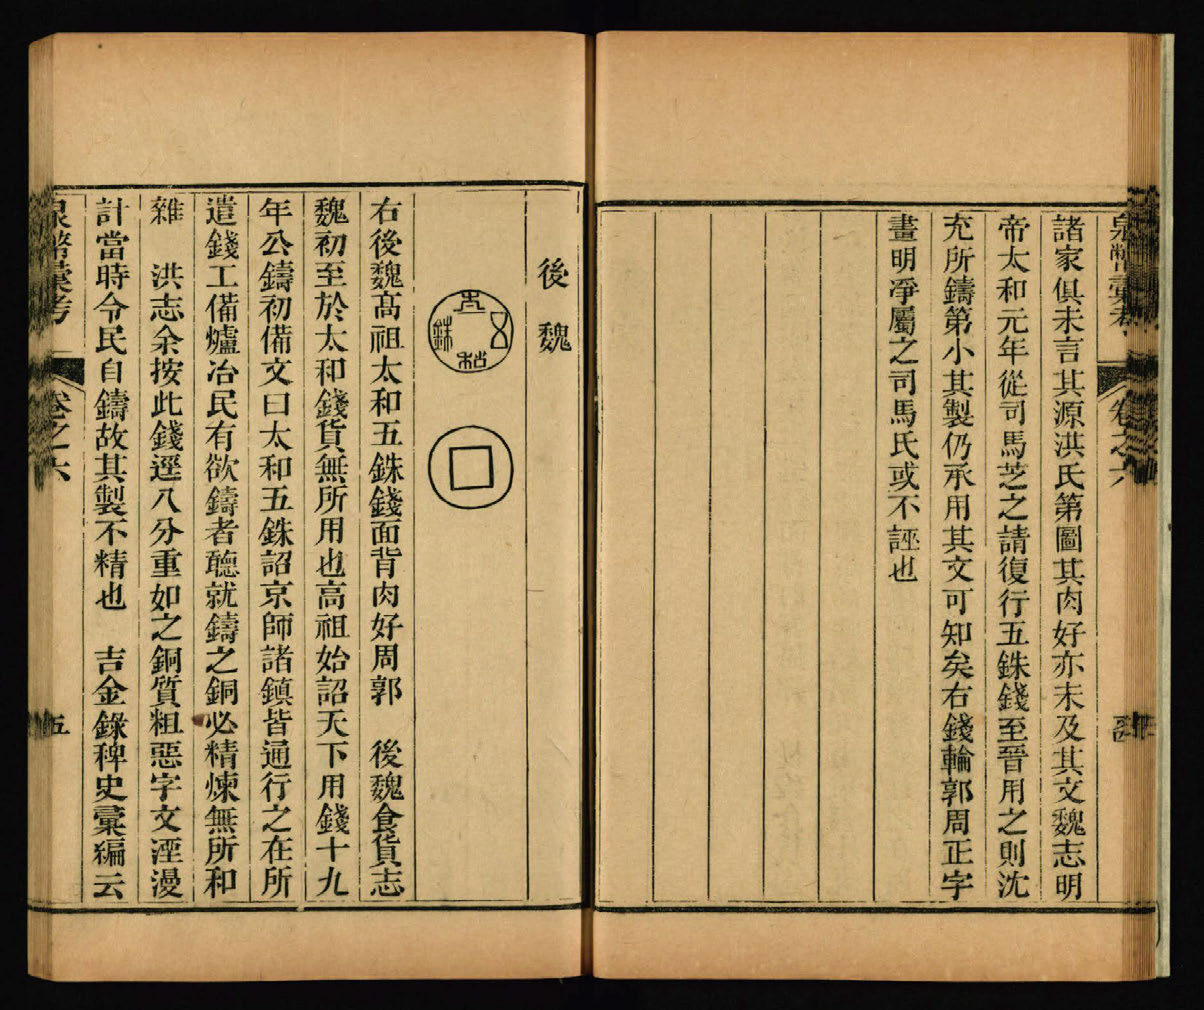 泉幣彙考
卷之六
諸家俱未言其源洪氏第圖其肉好亦未及其文魏志明
帝太和元年從司馬芝之請復行五銖錢至晉用之則沈
充所鑄第小其製仍承用其文可知矣右錢輪郭周正字
畫明凈屬之司馬氏或不誣也
後魏
右後魏高祖太和五銖錢面背肉好周郭　後魏食貨志
魏初至於太和錢貨無所用也高祖始詔天下用錢十九
年公鑄初備文曰太和五銖詔京師諸鎮皆通行之在所
遣錢工備爐冶民有欲鑄者聽就鑄之銅必精煉無所和
雜　洪志余按此錢逕八分重如之銅質粗惡字文湮漫
計當時令民自鑄故其製不精也　吉金錄稗史彙編云
泉幣彙考
卷之六
五